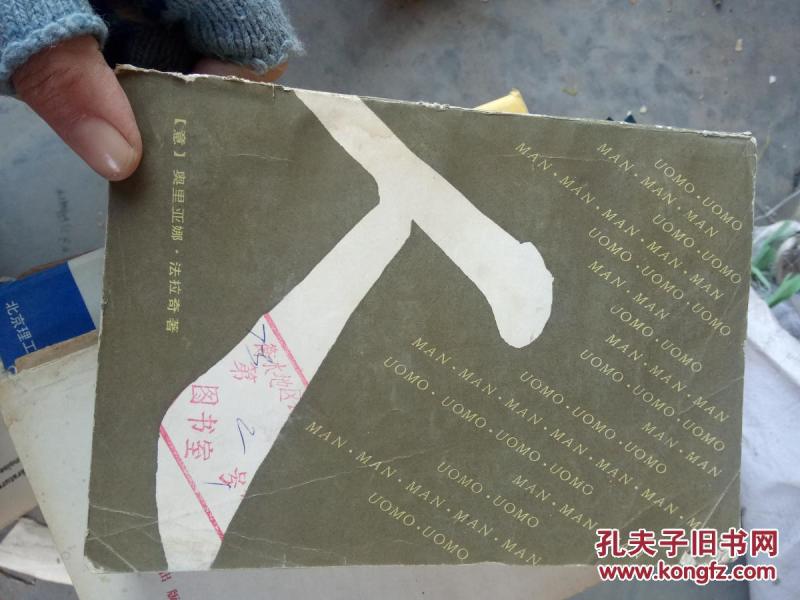 [意] 奥里亚娜·法拉奇著
人
UOMO·UOMO
MAN·MAN·MAN
MAN·MAN·MAN·MAN·MAN·MAN
UOMO·UOMO
UOMO·UOMO·UOMO
MAN·MAN
UOMO·UOMO
MAN·MAN·MAN
UOMO·UOMO·UOMO
MAN·MAN·MAN·MAN·MAN·MAN·MAN·MAN
UOMO·UOMO·UOMO
MAN·MAN
UOMO·UOMO·UOMO·UOMO
MAN·MAN·MAN·MAN·MAN·MAN
UOMO·UOMO
MAN·MAN
UOMO·UOMO
衡水地区
第 2 号
图书室
北京理工
出版
孔夫子旧书网
www.kongfz.com